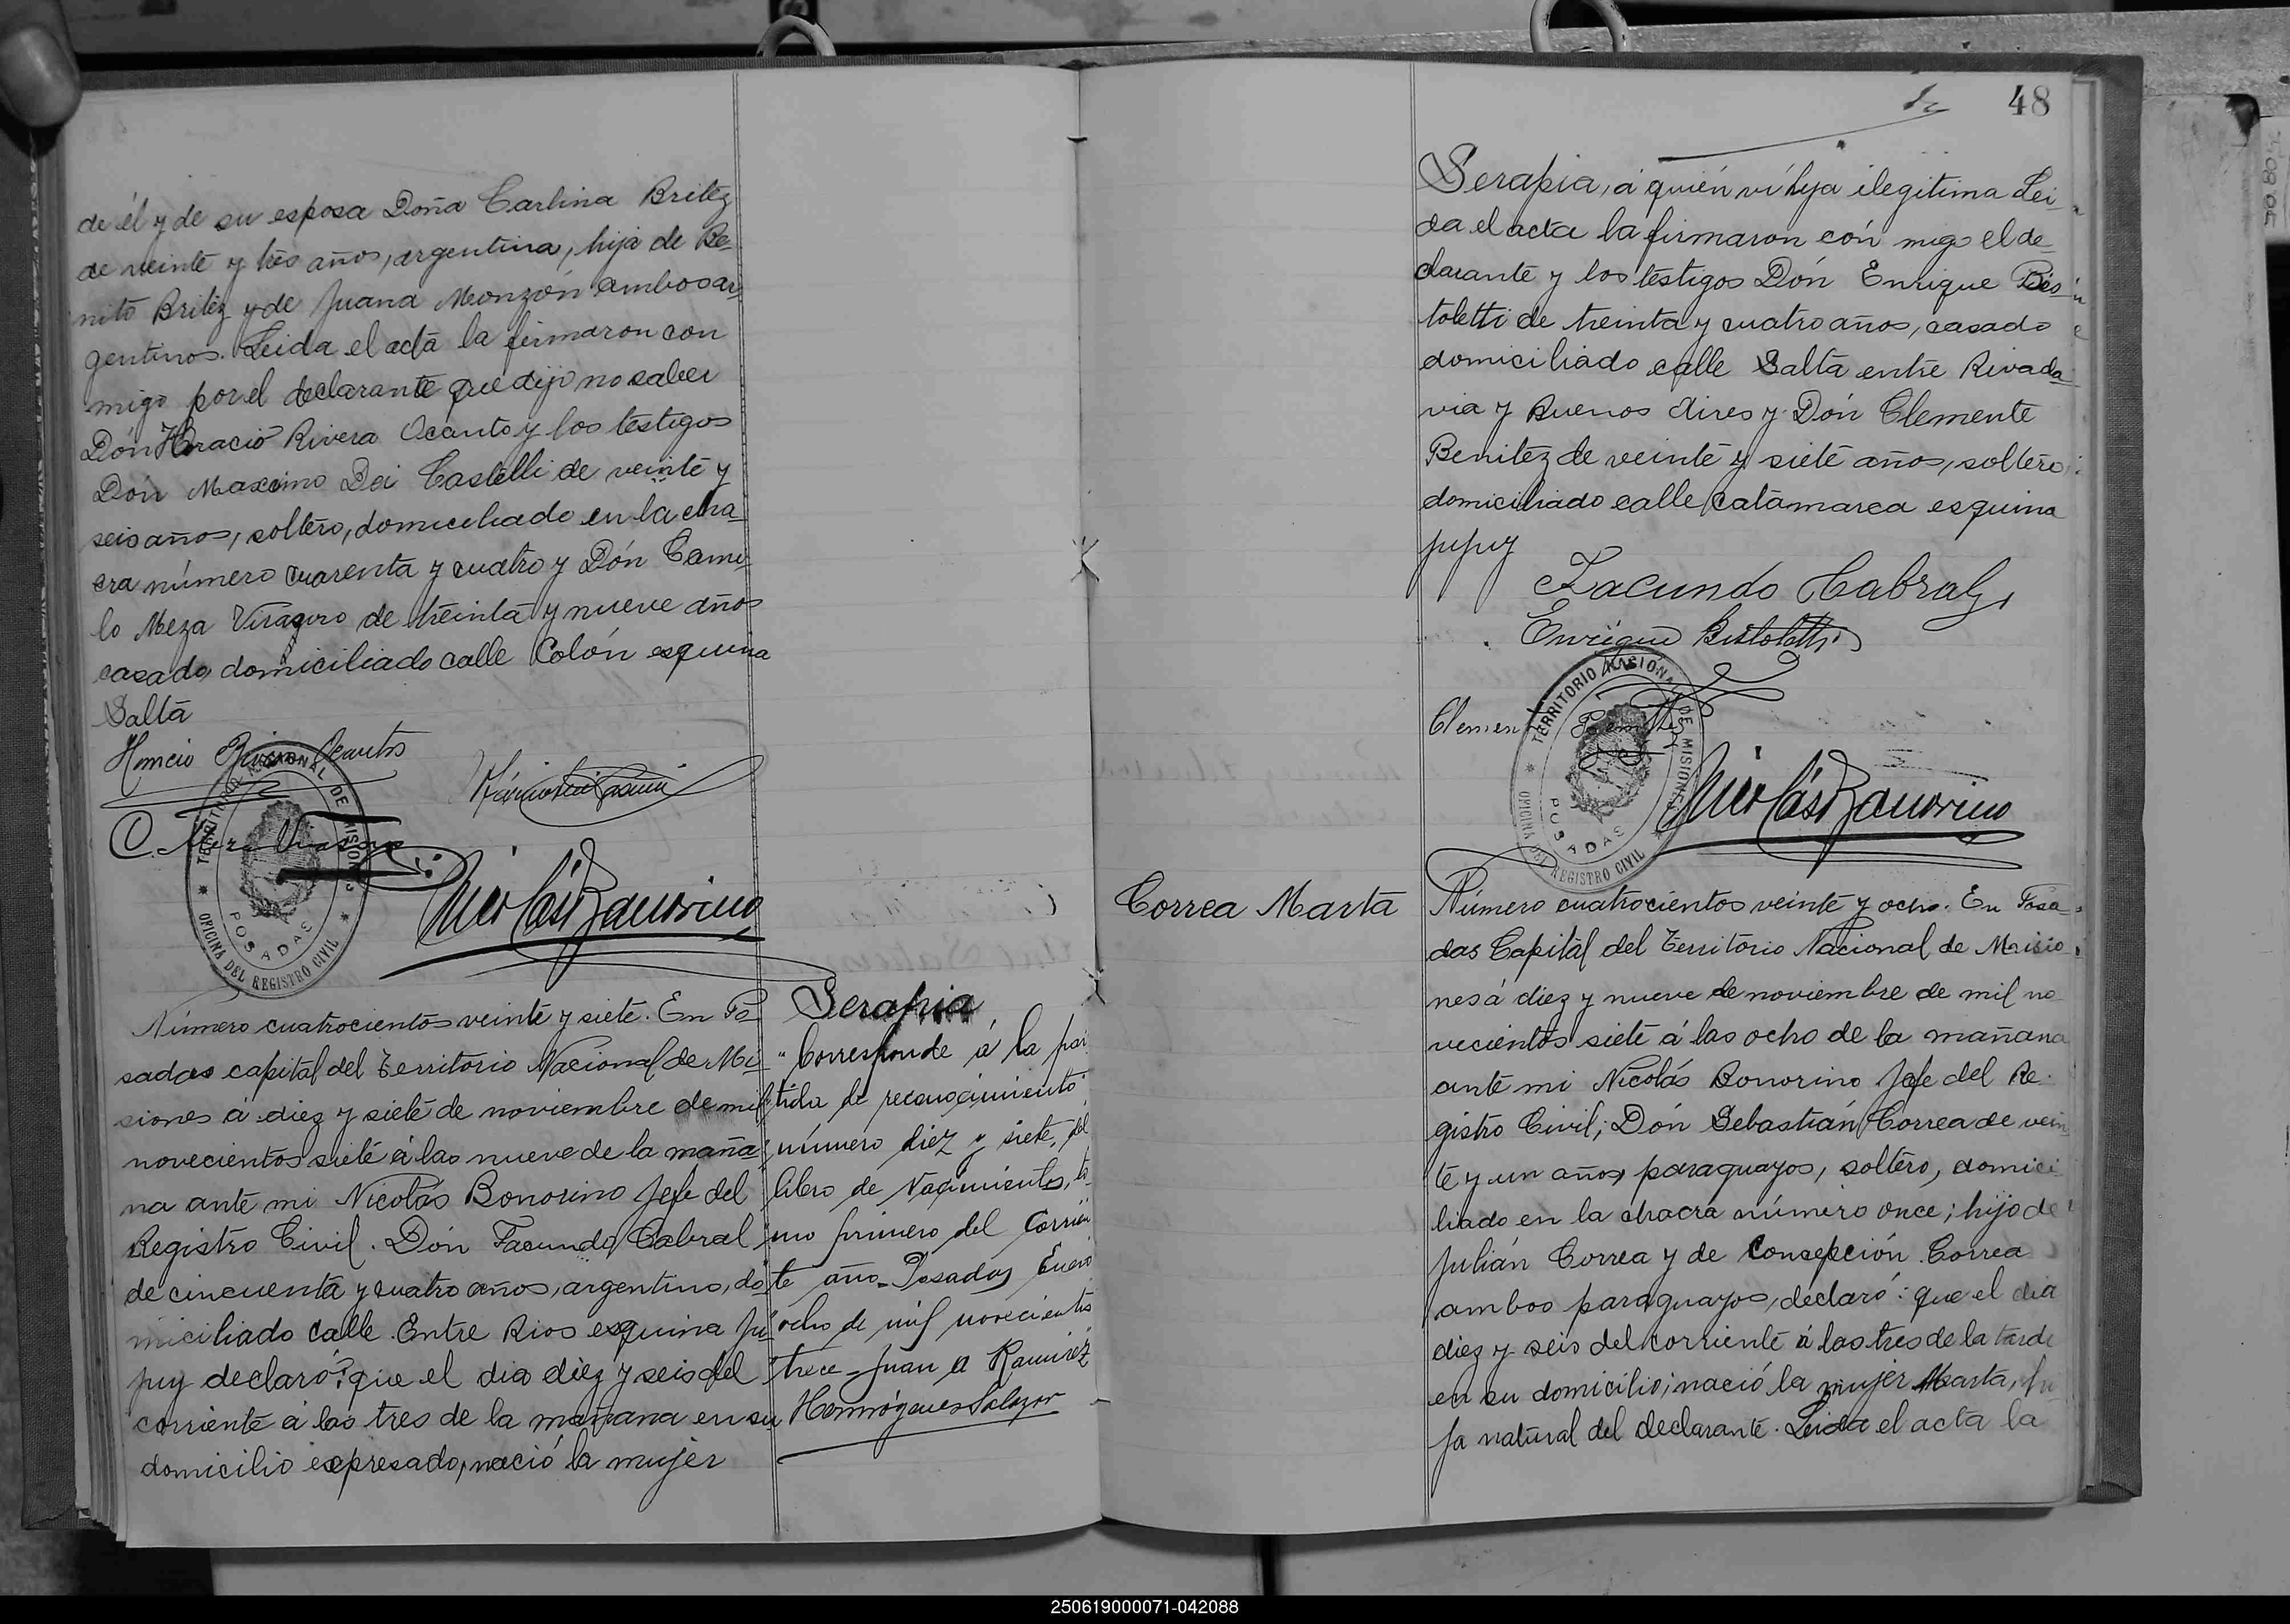 de él y de su esposa Doña Carlina Britez
de veinte y trés años, argentina, hija de Be-
nito Britez y de Juana Monzón ambos ar-
gentinos. Leida el acta la firmaron con
migo por el declarante que dijo no saber
Dón Horacio Rivera Ocanto y los testigos
Dón Maximo Dei Castelli de veinte y
seis años, soltero, domiciliado en la cha-
cra número cuarenta y cuatro y Dón Cami-
lo Meza Virasoro de treinta y nueve años
casado, domiciliado calle Colón esquina
Salta
Horacio Rivera Ocanto
C. Meza Virasoro
TERRITORIO NACIONAL DE MISIONES
POSADAS
OFICINA DEL REGISTRO CIVIL
Nicolás Bonorino
Número cuatrocientos veinte y siete. En Po-
sadas capital del Territorio Nacional de Mi-
siones á diez y siete de noviembre de mil
novecientos siete á las nueve de la maña-
na ante mi Nicolás Bonorino Jefe del
Registro Civil. Dón Facundo Cabral
de cincuenta y cuatro años, argentino, do-
miciliado calle Entre Rios esquina Ju-
juy declaró: que el dia diez y seis del
corriente á las tres de la mañana en su
domicilio expresado, nació la mujer
Serapia
"Corresponde á la par-
tida de reconocimiento
número diez y siete, del
libro de Nacimientos, to-
mo primero del corrien-
te año. Posadas, Enero
ocho de mil novecientos
trece - Juan A Ramirez
Hermógenes Salazar
48
Serapia, á quién ví hija ilegitima Lei-
da el acta la firmaron cón migo el de-
clarante y los testigos Dón Enrique Bis-
toletti de treinta y cuatro años, casado
domiciliado calle Salta entre Rivada-
via y Buenos Aires y Dón Clemente
Benitez de veinte y siete años, soltero
domiciliado calle Catamarca esquina
Jujuy
Facundo Cabral
Enrique Bistoletti
Clemente Benitez
TERRITORIO NACIONAL DE MISIONES
POSADAS
OFICINA DEL REGISTRO CIVIL
Nicolás Bonorino
Correa Marta
Número cuatrocientos veinte y ocho. En Posa-
das Capital del Territorio Nacional de Misio-
nes á diez y nueve de noviembre de mil no-
vecientos siete á las ocho de la mañana
ante mi Nicolás Bonorino Jefe del Re-
gistro Civil; Dón Sebastián Correa de vein-
te y un años, paraguayos, soltero, domici-
liado en la chacra número once; hijo de
Julián Correa y de Consepción Correa
ambos paraguayos, declaró: que el dia
diez y seis del corriente á las tres de la tarde
en su domicilio; nació la mujer Marta, hi-
ja natural del declarante. Leida el acta la
250619000071-042088